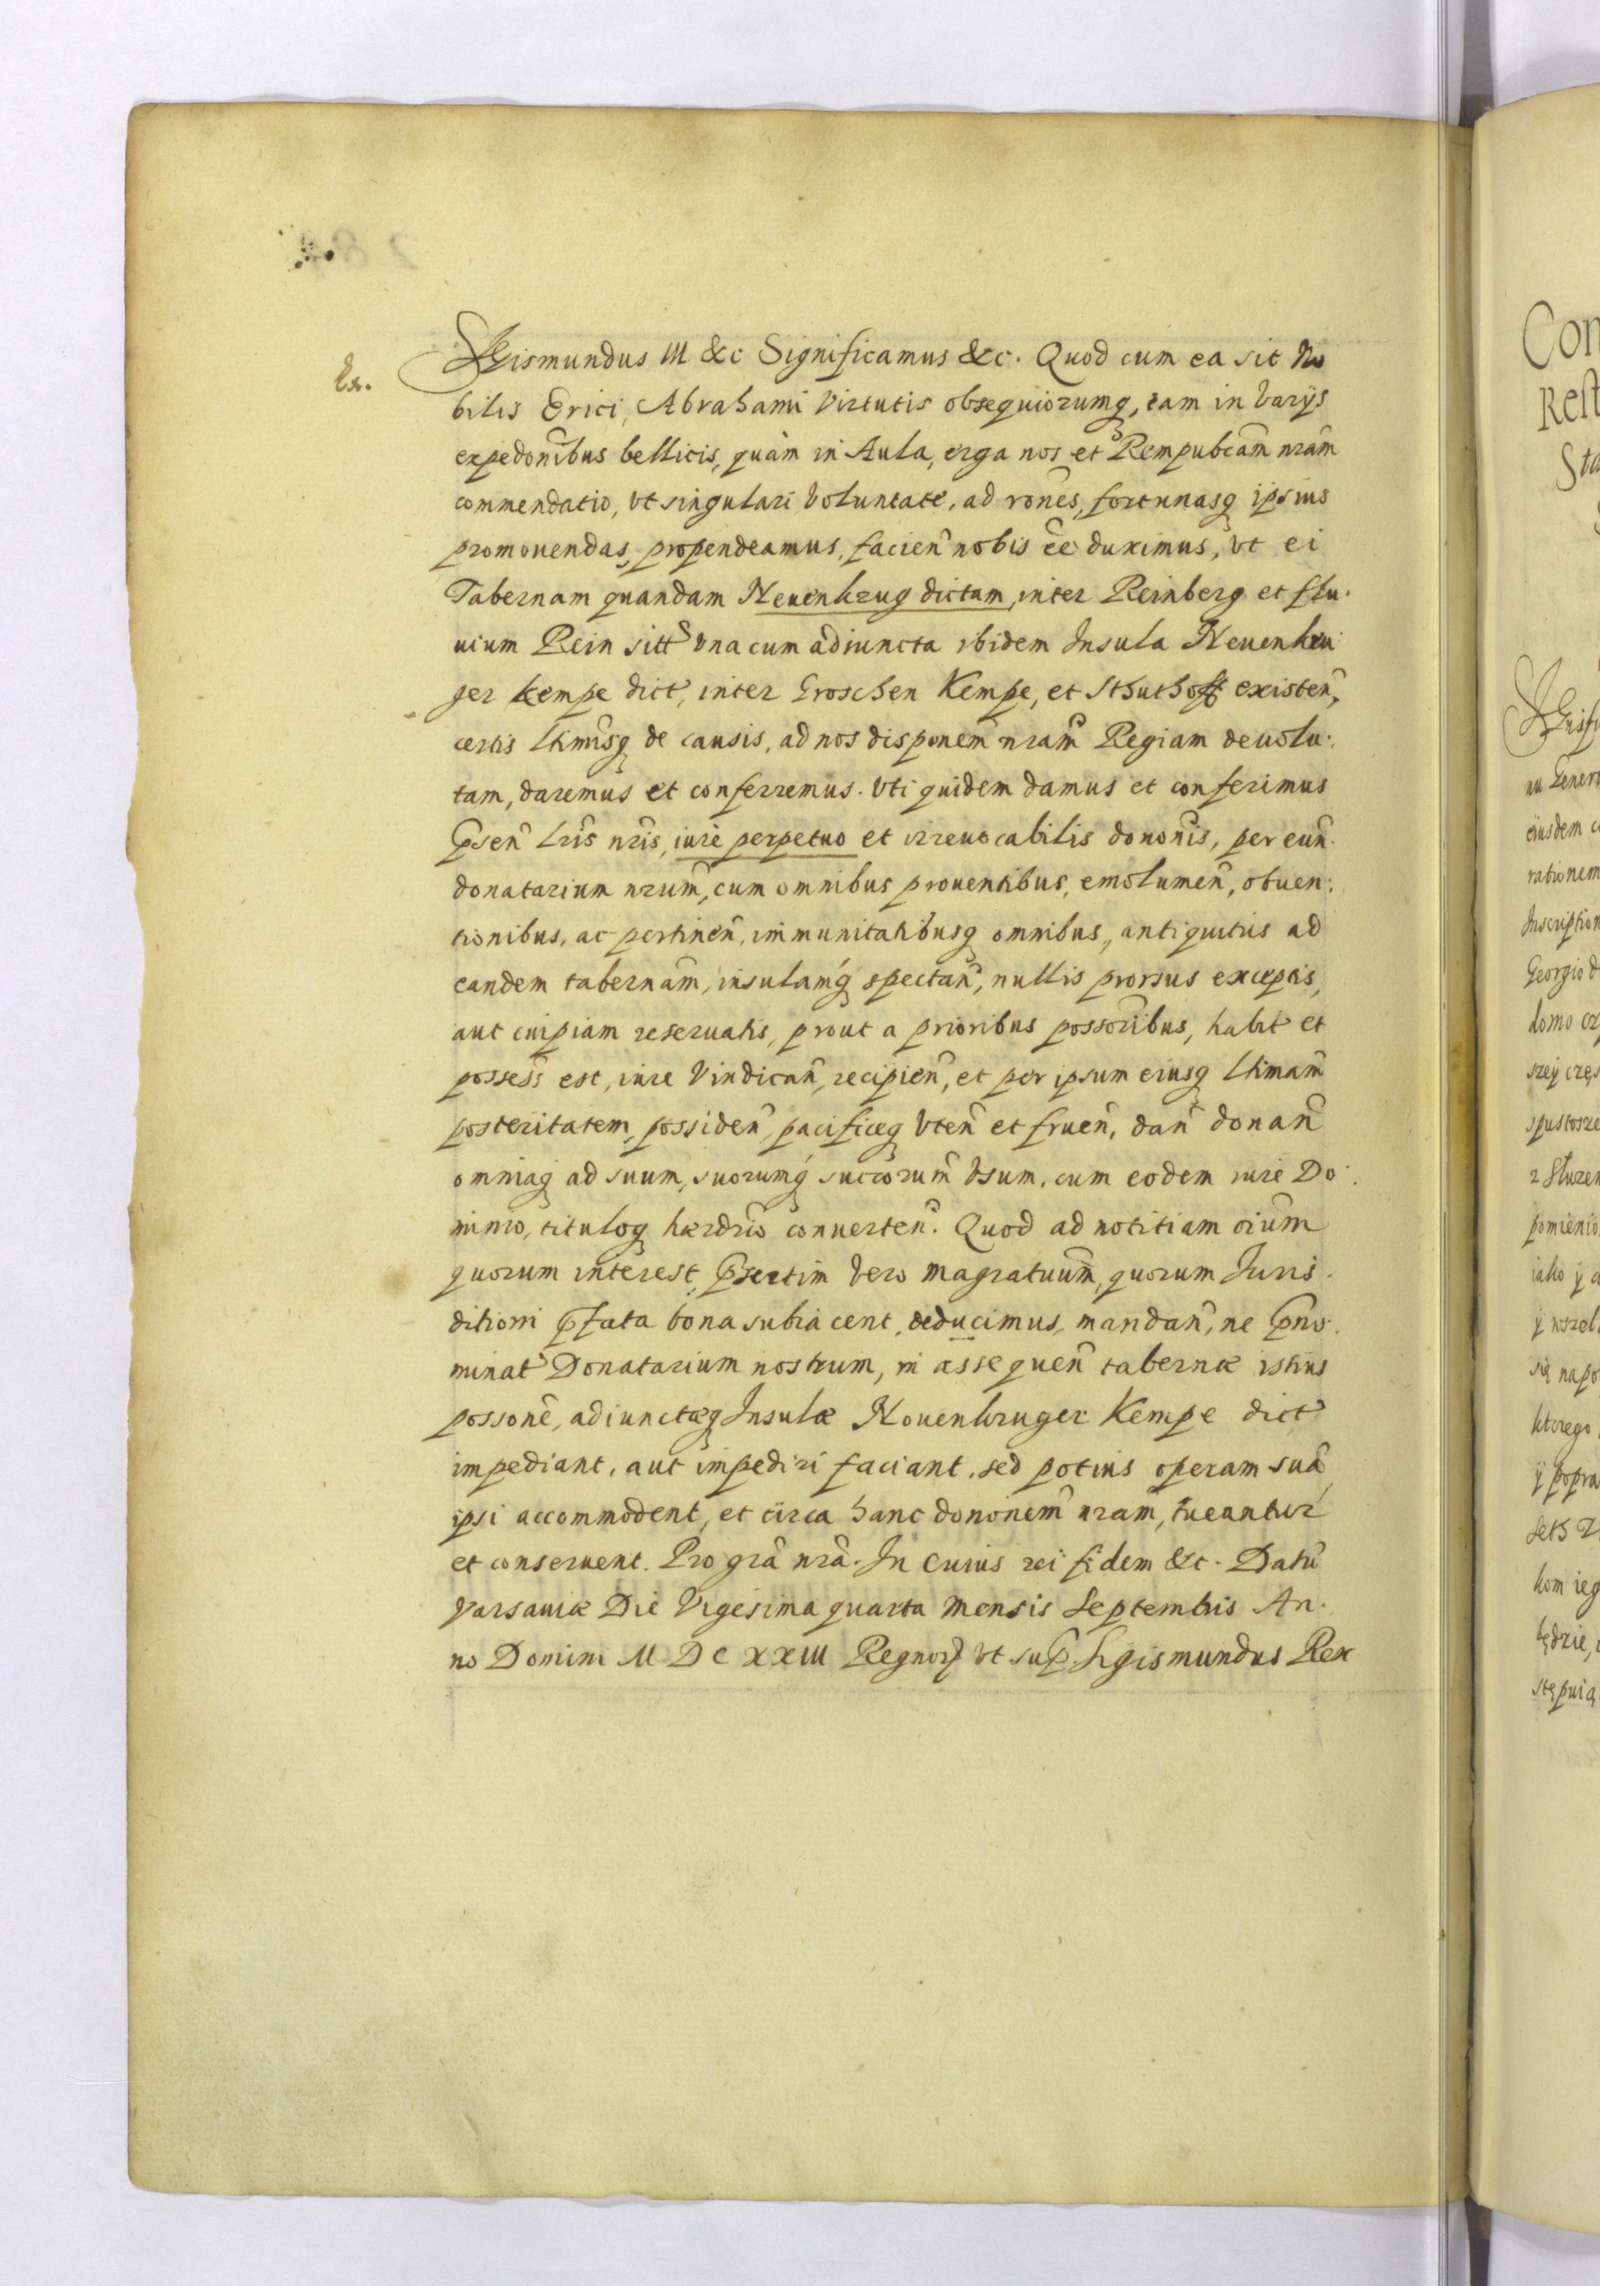 Ex.
SIGismundus III &c Significamus &c. Quod cum ea sit No
bilis Erici Abrahami Virtutis obsequiorumq, tam in Varijs
expedonibus bellicis, quàm in Aula, erga nos et Rempubcam nram
commendatio, vt singulari voluntate, ad rones, fortunasq ipsius
promouendas, propendeamus, facien nobis ee duximus, vt ei
Tabernam quandam Neuenkrug dictam, inter Reinberg et flu.
uium Rein sitt vna cum adiuncta ibidem Insula Neuenkru
ger Kempe dict, inter Groschen Kempe, et Sthuthoff existen,
certis lttimisq de causis, ad nos disponem nram Regiam deuolu:
tam, daremus et conferremus. Vti quidem damus et conferimus
psen lris nris, iure perpetuo et irreuocabilis dononis, per eun.
donatarium nrum, cum omnibus prouentibus, emolumen, obuen:
tionibus, ac pertinen, immunitatibusq omnibus, antiquitus ad
eandem tabernam, insulamq spectan, nullis prorsus exceptis,
aut cuipiam reseruatis, prout a prioribus possoribus, habit et
possess est, iure Vindican, recipien, et per ipsum eiusq lttimam
posteritatem, possiden, pacificeq vten et fruen, dan donan
omniaq ad suum, suorumq succorum Vsum, cum eodem iure Do:
minio, tituloq haerdrio conuerten. Quod ad notitiam oium
quorum interest, psertim Vero magratuum, quorum Juris.
ditioni pfata bona subiacent, deducimus, mandan, ne pno.
minat Donatarium nostrum, in assequen tabernæ istius
possone, adiunctæq Insulæ Nouenkruger Kempe dict
impediant, aut impediri faciant, sed potius operam sua
ipsi accommodent, et circa hanc dononem nram, tueantur
et conseruent. Pro gra nra. In cuius rei fidem &c. Datu
Varsauiæ Die Vigesima quarta Mensis Septembris An.
no Domini M D C XXIII Regnor vt sup. Sigismundus Rex